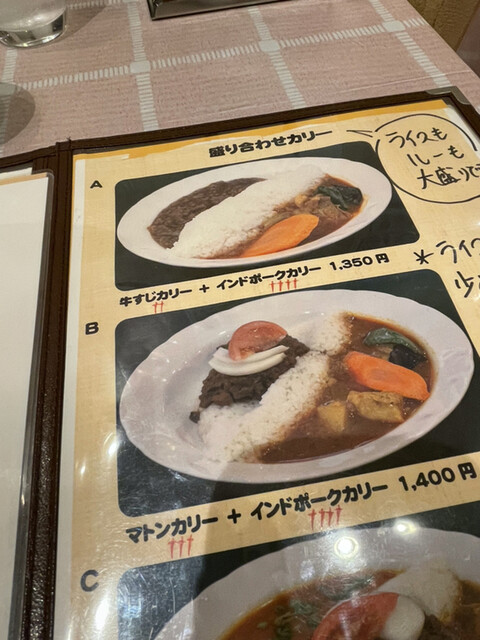 盛り合わせカリー
ライスも
ルーも
大盛りで
A
牛すじカリー + インドポークカリー 1,350円
*ライ
B
マトンカリー + インドポークカリー 1,400円
C